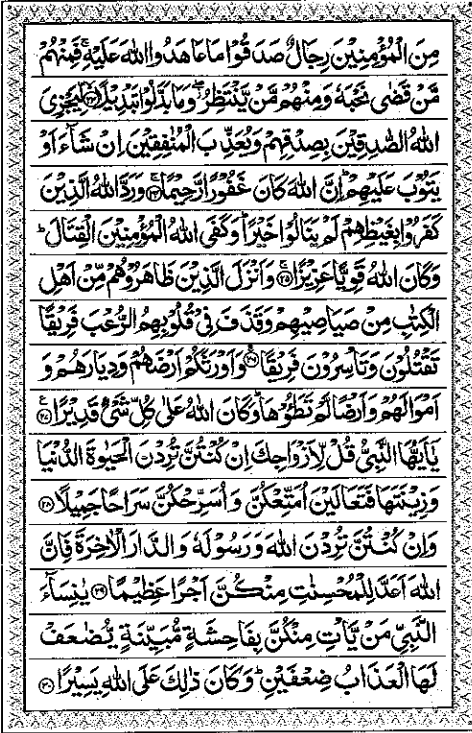 مِنَ الْمُؤْمِنِيْنَ رِجَالٌ صَدَقُوْا مَا عَاهَدُوا اللّٰهَ عَلَيْهِ ۚ فَمِنْهُمْ
مَّنْ قَضٰى نَحْبَهٗ وَمِنْهُمْ مَّنْ يَّنْتَظِرُ ۖ وَمَا بَدَّلُوْا تَبْدِيْلًا ﴿۲۳﴾ لِّيَجْزِىَ
اللّٰهُ الصّٰدِقِيْنَ بِصِدْقِهِمْ وَيُعَذِّبَ الْمُنٰفِقِيْنَ اِنْ شَآءَ اَوْ
يَتُوْبَ عَلَيْهِمْ ؕ اِنَّ اللّٰهَ كَانَ غَفُوْرًا رَّحِيْمًا ﴿۲۴﴾ وَرَدَّ اللّٰهُ الَّذِيْنَ
كَفَرُوْا بِغَيْظِهِمْ لَمْ يَنَالُوْا خَيْرًا ؕ وَكَفَى اللّٰهُ الْمُؤْمِنِيْنَ الْقِتَالَ ؕ
وَكَانَ اللّٰهُ قَوِيًّا عَزِيْزًا ﴿۲۵﴾ وَاَنْزَلَ الَّذِيْنَ ظَاهَرُوْهُمْ مِّنْ اَهْلِ
الْكِتٰبِ مِنْ صَيَاصِيْهِمْ وَقَذَفَ فِىْ قُلُوْبِهِمُ الرُّعْبَ فَرِيْقًا
تَقْتُلُوْنَ وَتَاْسِرُوْنَ فَرِيْقًا ﴿۲۶﴾ وَاَوْرَثَكُمْ اَرْضَهُمْ وَدِيَارَهُمْ وَ
اَمْوَالَهُمْ وَاَرْضًا لَّمْ تَطَـُٔوْهَا ؕ وَكَانَ اللّٰهُ عَلٰى كُلِّ شَىْءٍ قَدِيْرًا ﴿۲۷﴾
يٰۤاَيُّهَا النَّبِىُّ قُلْ لِّاَزْوَاجِكَ اِنْ كُنْتُنَّ تُرِدْنَ الْحَيٰوةَ الدُّنْيَا
وَزِيْنَتَهَا فَتَعَالَيْنَ اُمَتِّعْكُنَّ وَاُسَرِّحْكُنَّ سَرَاحًا جَمِيْلًا ﴿۲۸﴾
وَاِنْ كُنْتُنَّ تُرِدْنَ اللّٰهَ وَرَسُوْلَهٗ وَالدَّارَ الْاٰخِرَةَ فَاِنَّ
اللّٰهَ اَعَدَّ لِلْمُحْسِنٰتِ مِنْكُنَّ اَجْرًا عَظِيْمًا ﴿۲۹﴾ يٰنِسَآءَ
النَّبِىِّ مَنْ يَّاْتِ مِنْكُنَّ بِفَاحِشَةٍ مُّبَيِّنَةٍ يُّضٰعَفْ
لَهَا الْعَذَابُ ضِعْفَيْنِ ؕ وَكَانَ ذٰلِكَ عَلَى اللّٰهِ يَسِيْرًا ﴿۳۰﴾